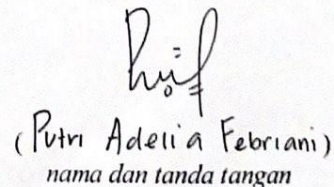 (Putri Adelia Febriani)
nama dan tanda tangan